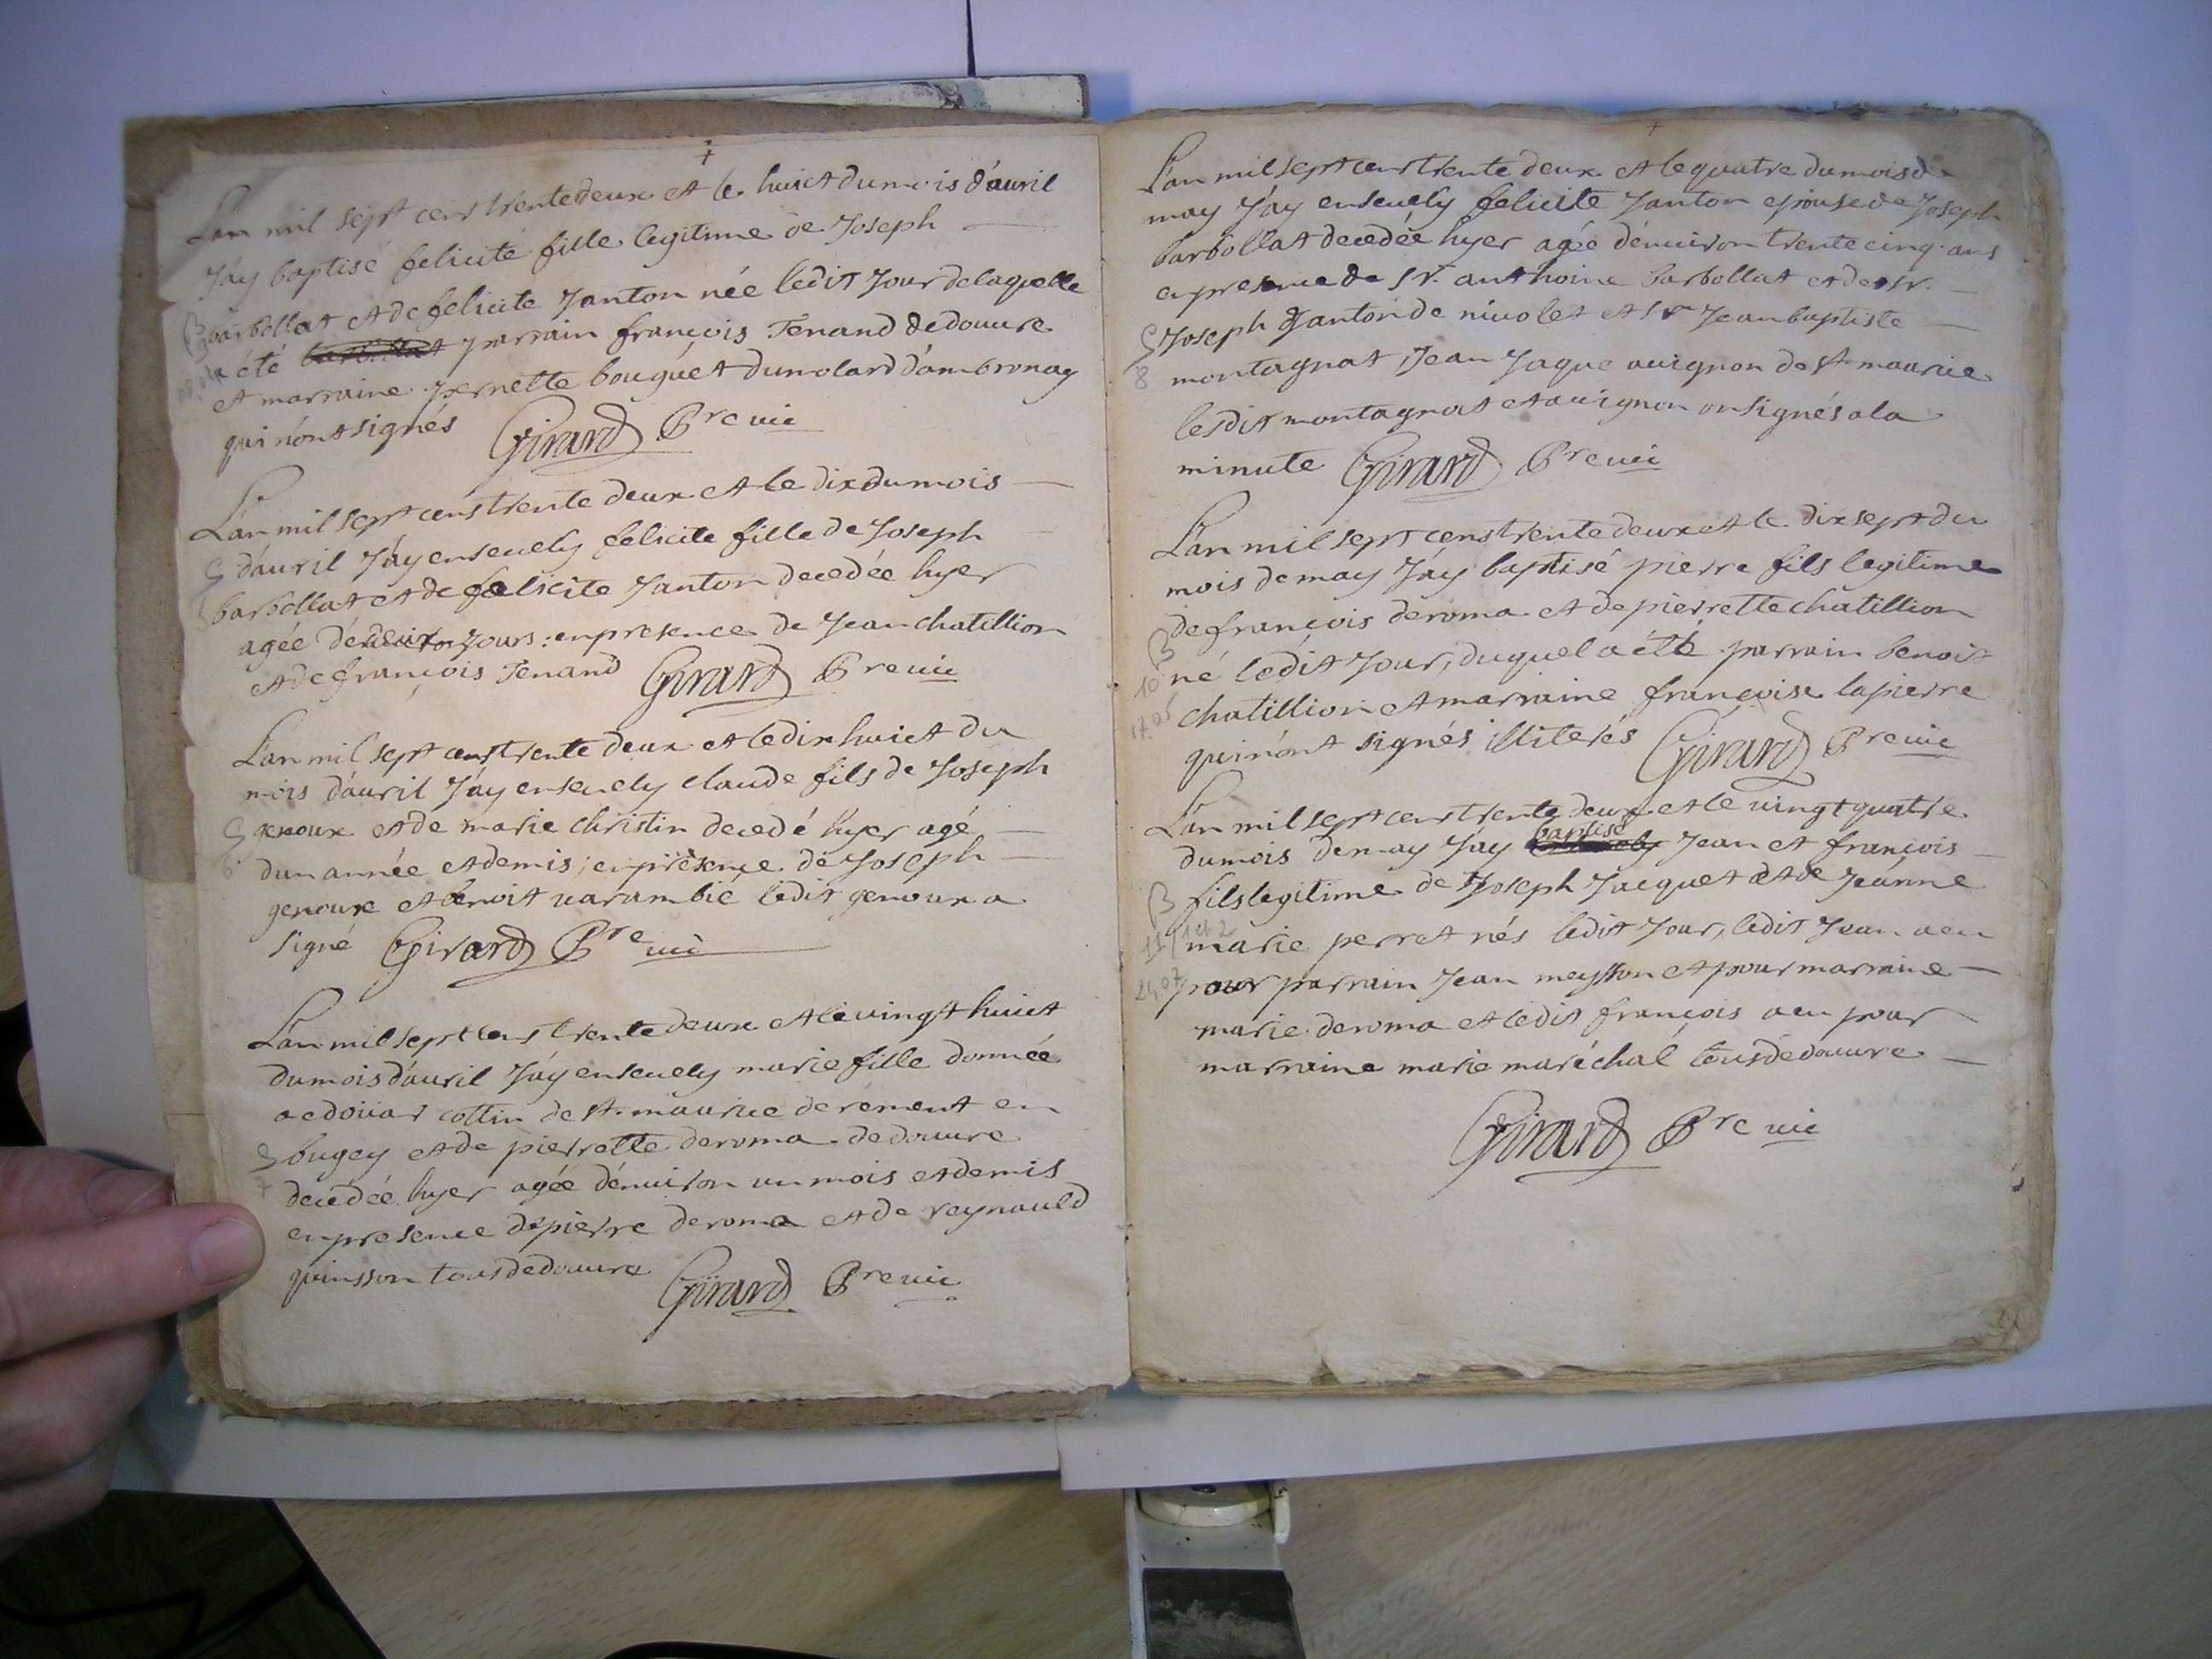 L'an mil sept cens trente deux et le huict du mois d'auril
J'ay baptisé felicité fille legitime de Joseph
barbollat et de felicite Janton née ledit Jour de laquelle
a été parrain françois Tenand dedouure
et marraine pernette bouguet dumolard d'ambronay
qui n'ont signés Girard Pre vic
L'an mil sept cens trente deux et le dix du mois
d'auril J'ay enseuely felicite fille de Joseph
barbollat et de felicite Janton decedée hyer
agée de deux Jours : en presence de Jean chatillion
et de françois Tenand Girard Pre vic
L'an mil sept cens trente deux et le dix huict du
mois d'auril J'ay enseuely claude fils de Joseph
genoux et de marie christin decedé hyer agé
6
dun année et demis ; en presence de Joseph
genoux et benoit varambié ledit genoux a
signé Girard Pre vic
L'an mil sept cens trente deux et le vingt huict
du mois d'auril J'ay enseuely marie fille donnée
a edouar cottin de st. maurice de rement en
bugey et de pierrette deroma de douure
7
decedée hyer agée d'enuiron un mois et demis
en presence de pierre deroma et de reynauld
quinsson tous de douure Girard Pre vic
L'an mil sept cens trente deux et le quatre du mois de
may J'ay enseuely felicite Janton epouse de Joseph
barbollat decedée hyer agée d'enuiron trente cinq ans
en presence de sr. anthoine barbollat et de sr.
S Joseph Janton de niuolet et sr Jean baptiste
8 montagnat, Jean Jaque auignon de st maurice
lesdit montagnat et auignon on signés a la
minute Girard Pre vic
L'an mil sept cens trente deux et le dix sept du
mois de may J'ay baptisé pierre fils legitime
de françois deroma et de pierrette chatillion
B
10 né ledit Jour, duquel a été parrain benoit
17.05 chatillion et marraine françoise lapierre
qui n'ont signés illiterés Girard Pre vic
L'an mil sept cens trente deux et le vingt quatre
du mois de may J'ay baptisé Jean et françois
B fils legitime de Joseph Jacquet et de Jeanne
11 1 et 2 marie perret nés ledit Jour, ledit Jean a eu
pour parrain Jean meysson et pour marraine
marie deroma et ledit françois a eu pour
marraine marie maréchal tous de douure
Girard Pre vic